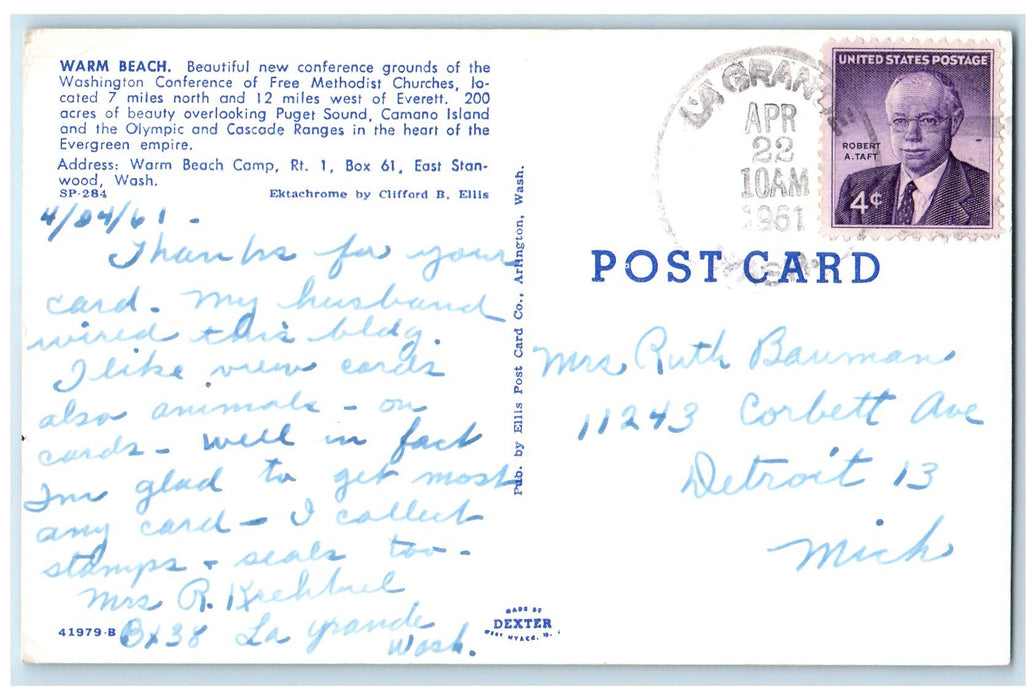 WARM BEACH. Beautiful new conference grounds of the
Washington Conference of Free Methodist Churches, lo-
cated 7 miles north and 12 miles west of Everett. 200
acres of beauty overlooking Puget Sound, Camano Island
and the Olympic and Cascade Ranges in the heart of the
Evergreen empire.
Address: Warm Beach Camp, Rt. 1, Box 61, East Stan-
wood, Wash.
SP-284 Ektachrome by Clifford B. Ellis
4/24/61 -
Thanks for your
card. My husband
wired this bldg.
I like view cards
also animals - on
cards - well in fact
Im glad to get most
any card - I collect
stamps + seals too -
Mrs R. Krehbiel
Bx 38 La Grande
Wash.
41979-B
Pub. by Ellis Post Card Co., Arlington, Wash.
MADE BY
DEXTER
WEST NYACK, N.
LA GRANDE
APR
22
10AM
1961
UNITED STATES POSTAGE
ROBERT
A. TAFT
4¢
POST CARD
Mrs Ruth Bauman
11243 Corbett Ave
Detroit 13
Mich